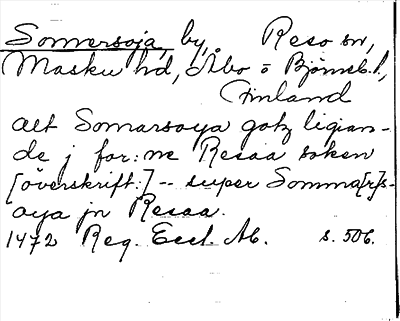 Somersoja, by, Reso sn,
Masku hd, Åbo o Björneb. l.,
Finland
aet Somarsoya gotz ligian-
de j for:ne Resaa soken
[överskrift:] -- super Somma[r]s-
oya jn Resaa.
1472 Reg. Eccl. Ab. s. 506.